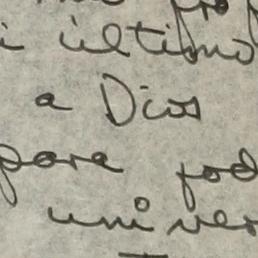 i último
a Dios
para tod
univer